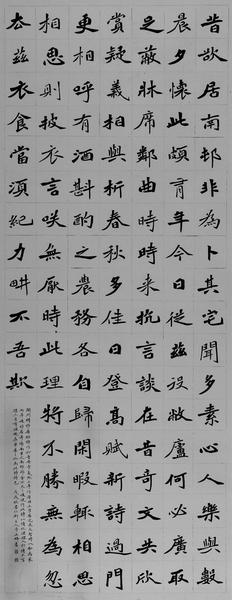 昔欲居南邨非為卜其宅聞多素心人樂與數
晨夕懷此頗有年今日從茲役敝廬何必廣取
足蔽牀席鄰曲時時来抗言談在昔奇文共欣
賞疑義相與析春秋多佳日登高賦新詩過門
更相呼有酒斟酌之農務各自歸閑暇輒相思
相思則披衣言咲無厭時此理將不勝無為忽
去茲衣食當須紀力畊不吾欺